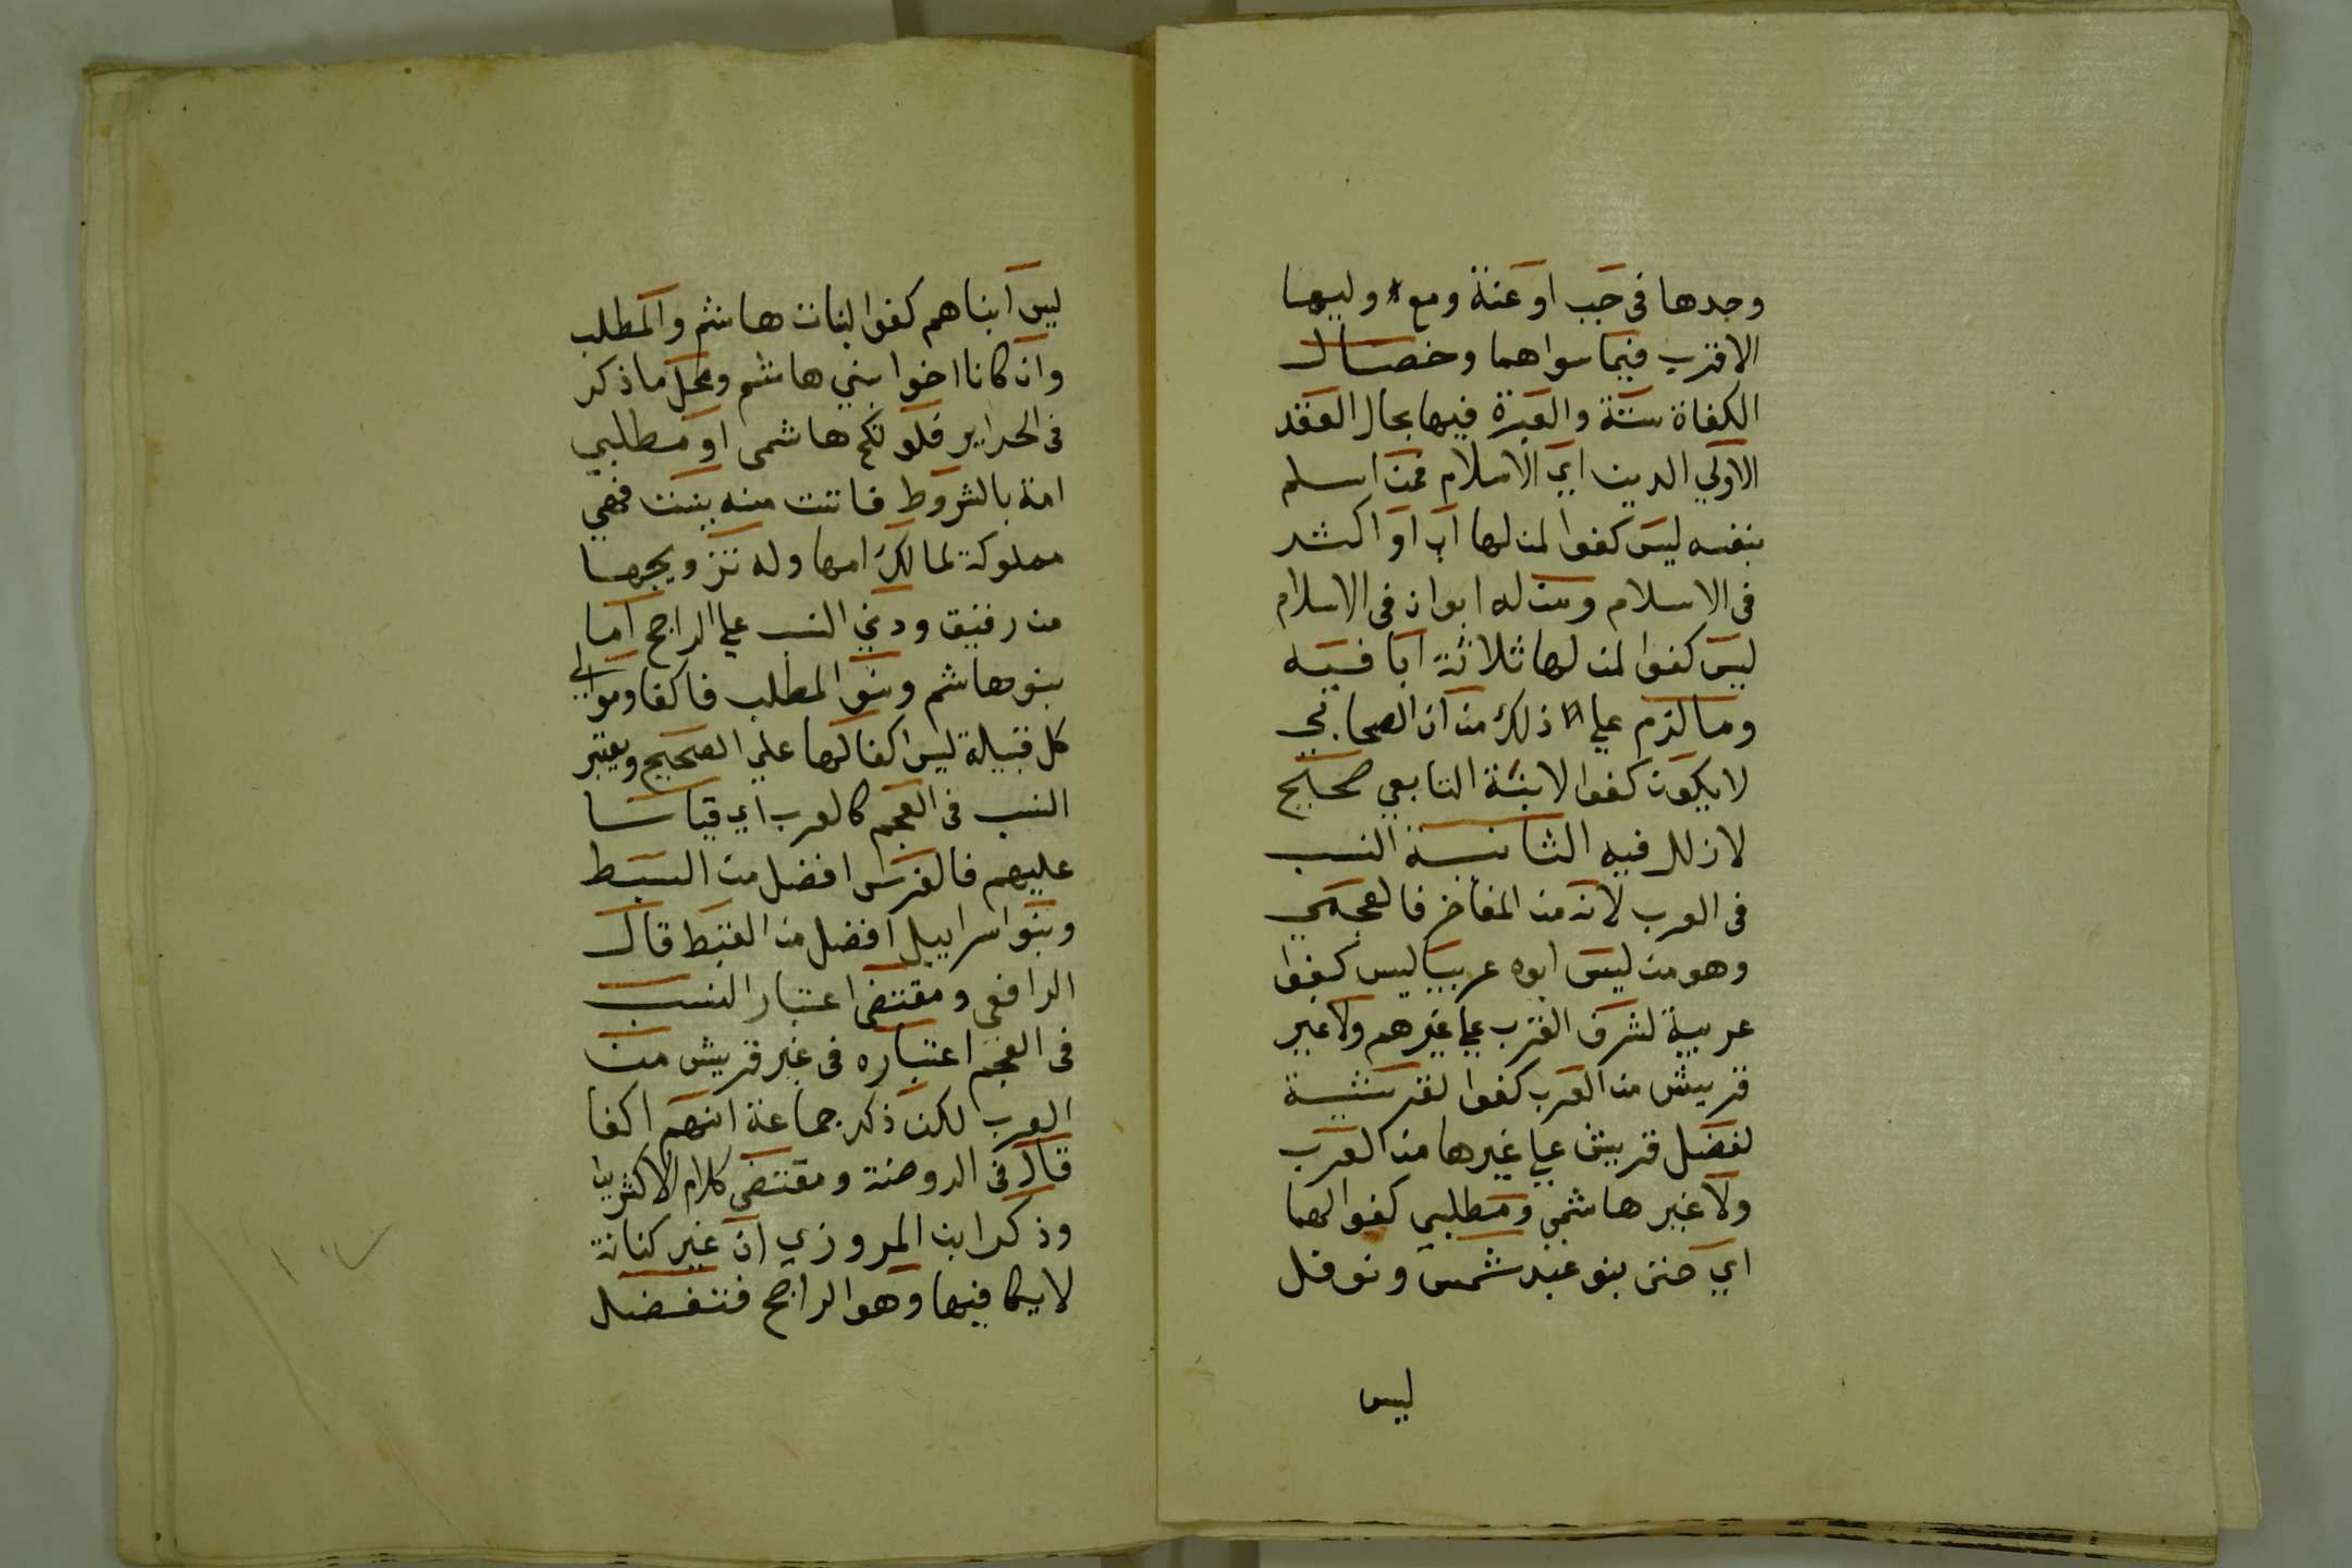 وحدها فى جب او عنة ومع وليها
الاقرب فيما سواهما وخصال
الكفاة ستة والعبرة فيها بحال العقد
الاولي الدين اي الاسلام فمن اسلم
بنفسه ليس كفوا لمن لها اب او اكثر
فى الاسلام ومن له ابوان فى الاسلام
ليس كفوا لمن لها ثلاثة ابا فيه
وما لزم علي ذلك من ان الصحابي
لا يكون كفوا لابنة التابعي صحيح
لا زلل فيه الثانية النسب
فى العرب لانه من المفاخر فالعجمي
وهو من ليس ابوه عربيا ليس كفوا
عربية لشرف العرب علي غيرهم ولا غير
قريش من العرب كفوا لقرشية
لفضل قريش علي غيرها من العرب
ولا غير هاشمي ومطلبي كفوا لهما
اي حتى بنو عبد شمس ونوفل
ليس
ليس ابناهم كفوا لبنات هاشم والمطلب
وان كانا اخوا بني هاشم ومحل ما ذكر
فى الحراير فلو نكح هاشمى او مطلبي
امة بالشروط فاتت منه ببنت فهي
مملوكة لمالك امها وله تزويجها
من رقيق ودني النسب علي الراجح اما
بنو هاشم وبنو المطلب فاكفا وموالي
كل قبيلة ليس اكفا لها علي الصحيح ويعتبر
النسب فى العجم كالعرب اي قياسا
عليهم فالفرس افضل من النبط
وبنو اسراييل افضل من القبط قال
الرافعي ومقتضى اعتبار النسب
فى العجم اعتباره فى غير قريش من
العرب لكن ذكر جماعة انهم اكفا
قال فى الروضة ومقتضى كلام الاكثرين
وذكر ابن المروزي ان غير كنانة
لا يكافيها وهو الراجح فتفضل